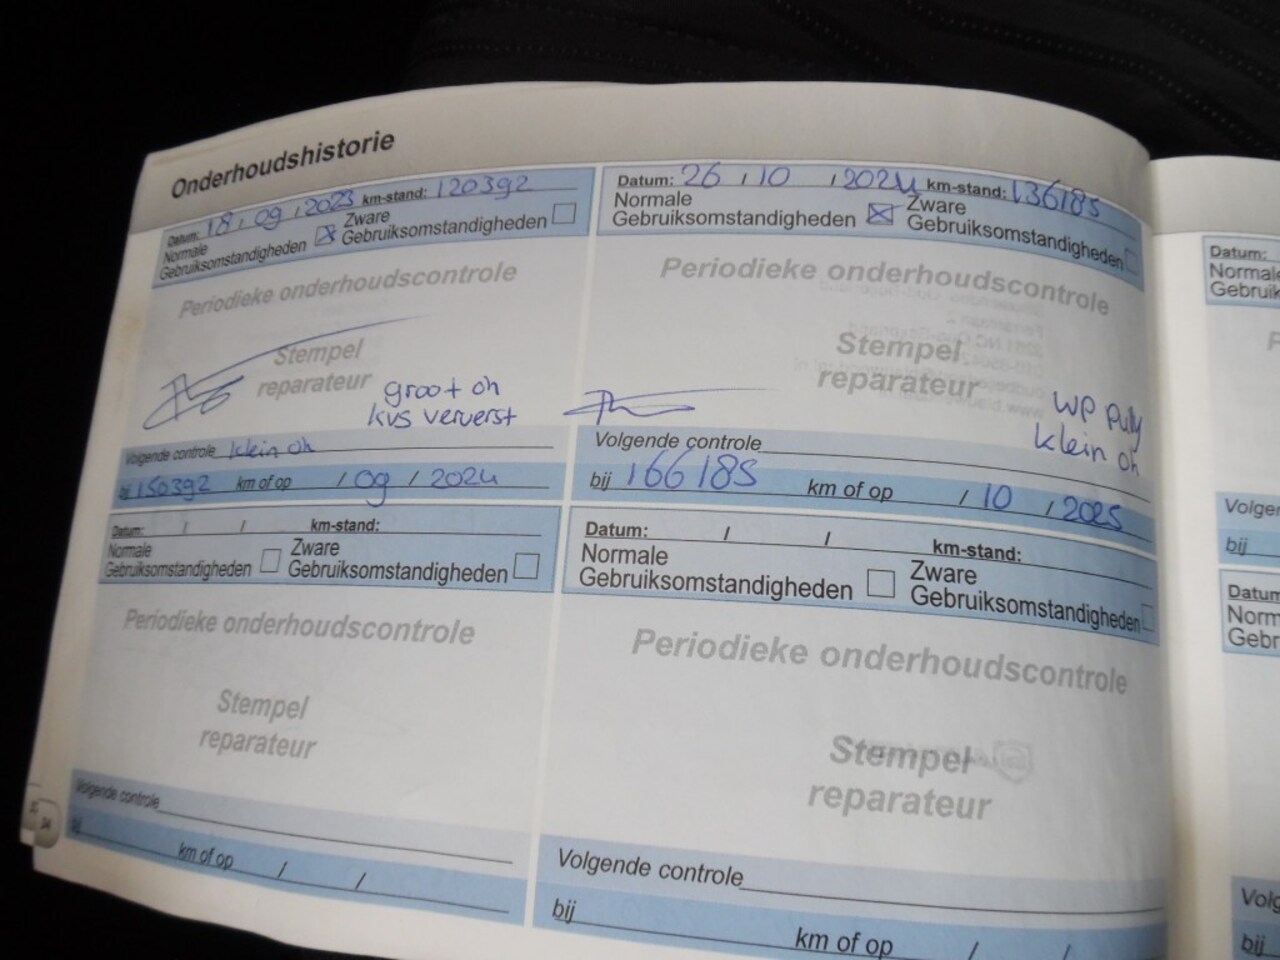 Onderhoudshistorie
Datum: 18 / 09 / 2023 km-stand: 120392
Normale Gebruiksomstandigheden ☒ Zware Gebruiksomstandigheden ☐
Periodieke onderhoudscontrole
Stempel
reparateur
groot oh
kvs ververst
Volgende controle klein oh
bij 150392 km of op / 09 / 2024
Datum: 26 / 10 / 2024 km-stand: 136185
Normale Gebruiksomstandigheden ☒ Zware Gebruiksomstandigheden ☐
Periodieke onderhoudscontrole
Stempel
reparateur
WP pully
klein oh
Volgende controle
bij 166185 km of op / 10 / 2025
Datum: / / km-stand:
Normale Gebruiksomstandigheden ☐ Zware Gebruiksomstandigheden ☐
Periodieke onderhoudscontrole
Stempel
reparateur
Volgende controle
bij km of op / /
Datum: / / km-stand:
Normale Gebruiksomstandigheden ☐ Zware Gebruiksomstandigheden ☐
Periodieke onderhoudscontrole
Stempel
reparateur
Volgende controle
bij km of op / /
34
Datum:
bij
bij